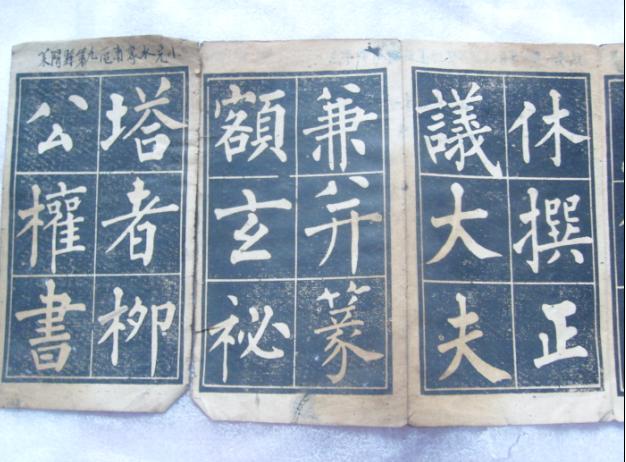 休撰正
議大夫
兼并篆
額玄秘
塔者柳
公權書